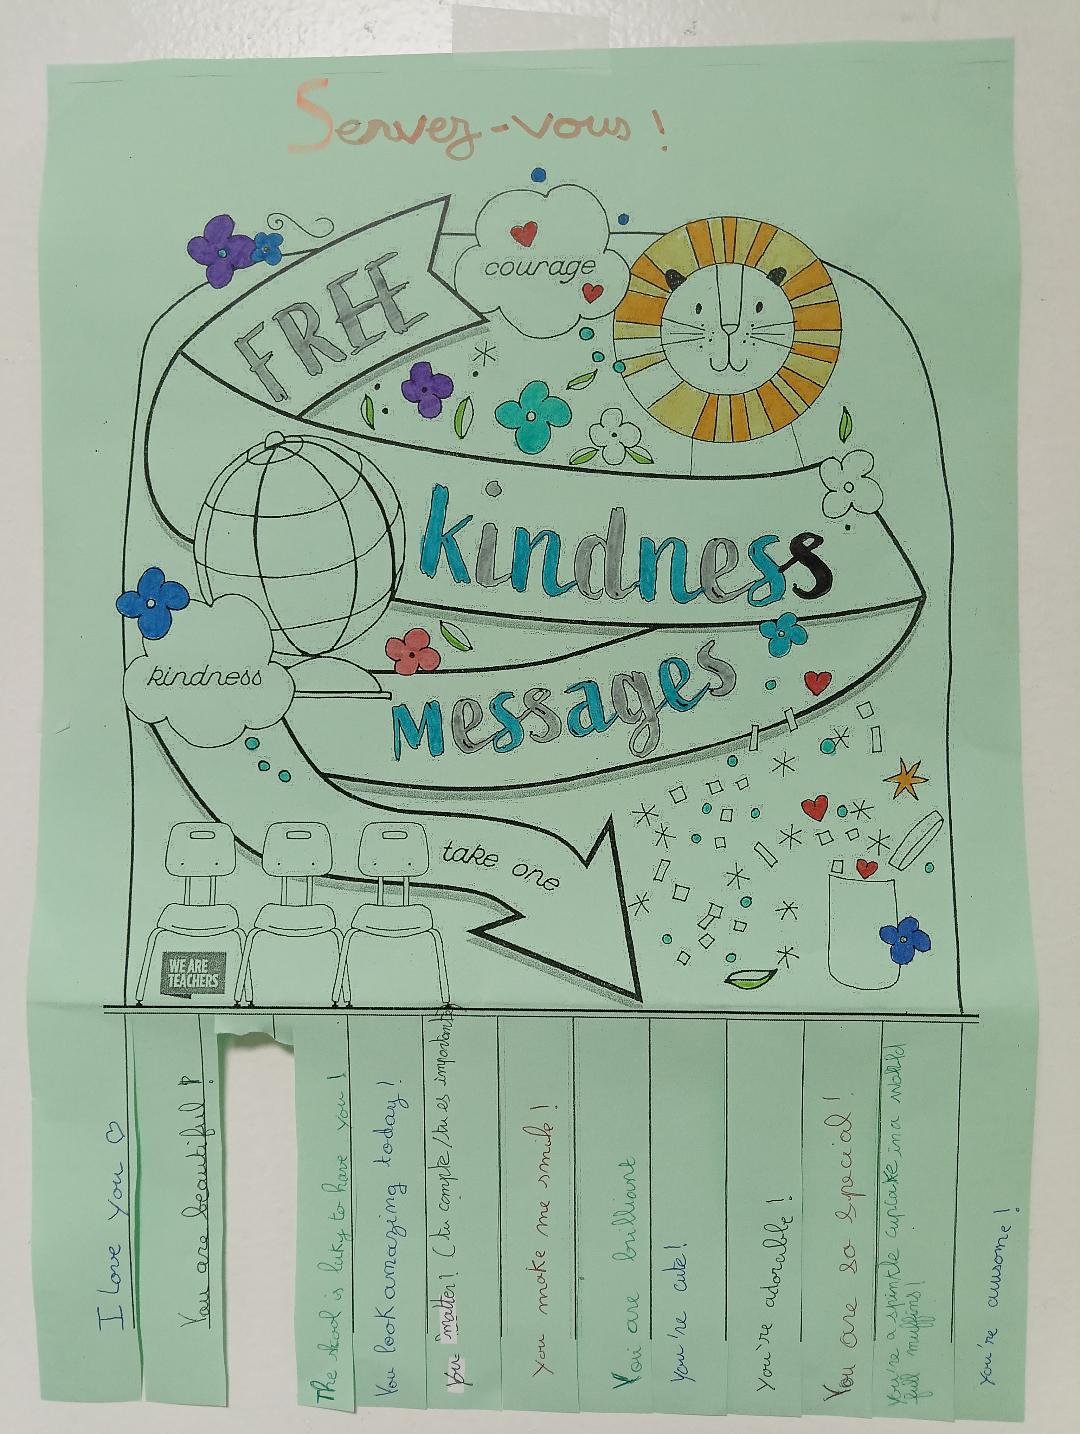 Servez-vous !
FREE
courage
kindness
kindness
messages
take one
WE ARE
TEACHERS
I love you ♡
You are beautiful !
The skool is luky to have you !
You look amazing today!
You matter! ( tu compte/tu es important
You make me smile!
You are brilliant
You're cute!
You're adorable!
You are so special!
You're a spinkle cupcake in a world
full muffins!
You're awsome!